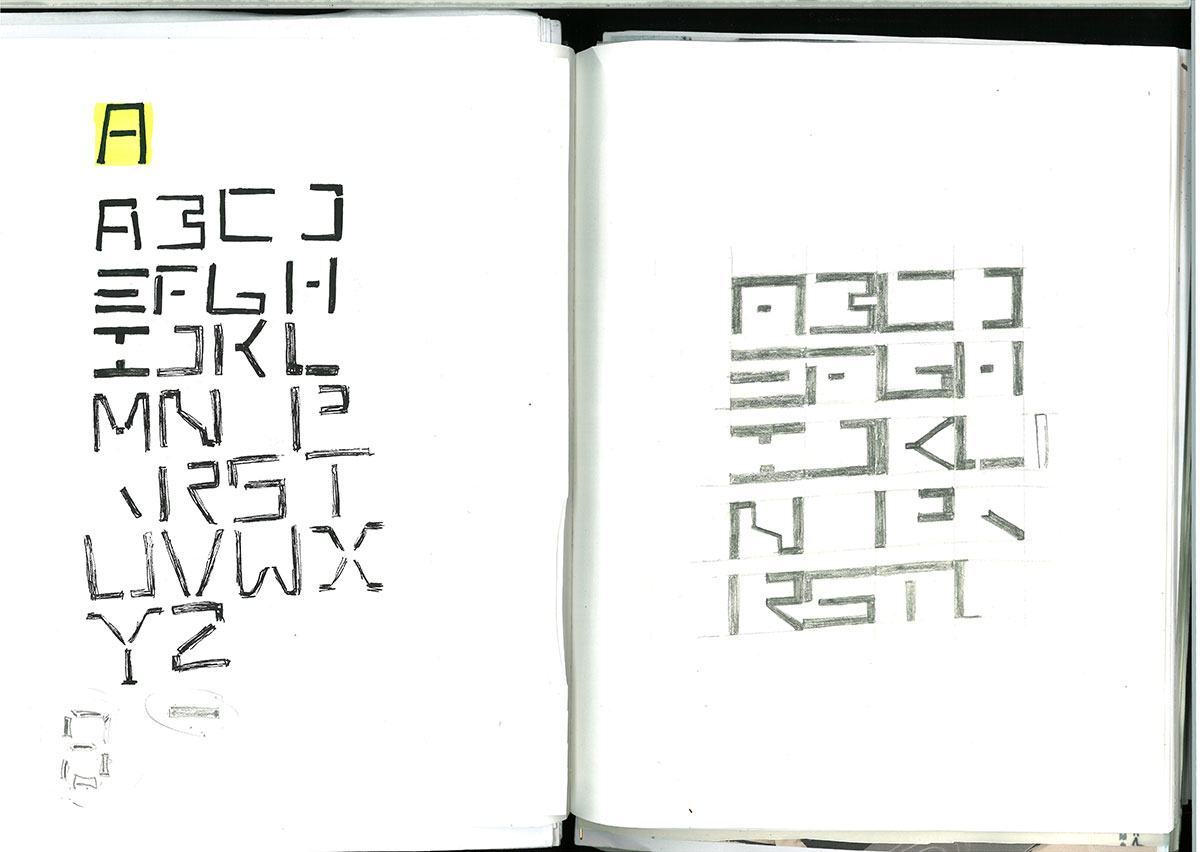 A
A B C D
E F G H
I J K L
M N P
R S T
U V W X
Y Z
A B C D
E F G H
I J K L
N P
R S T